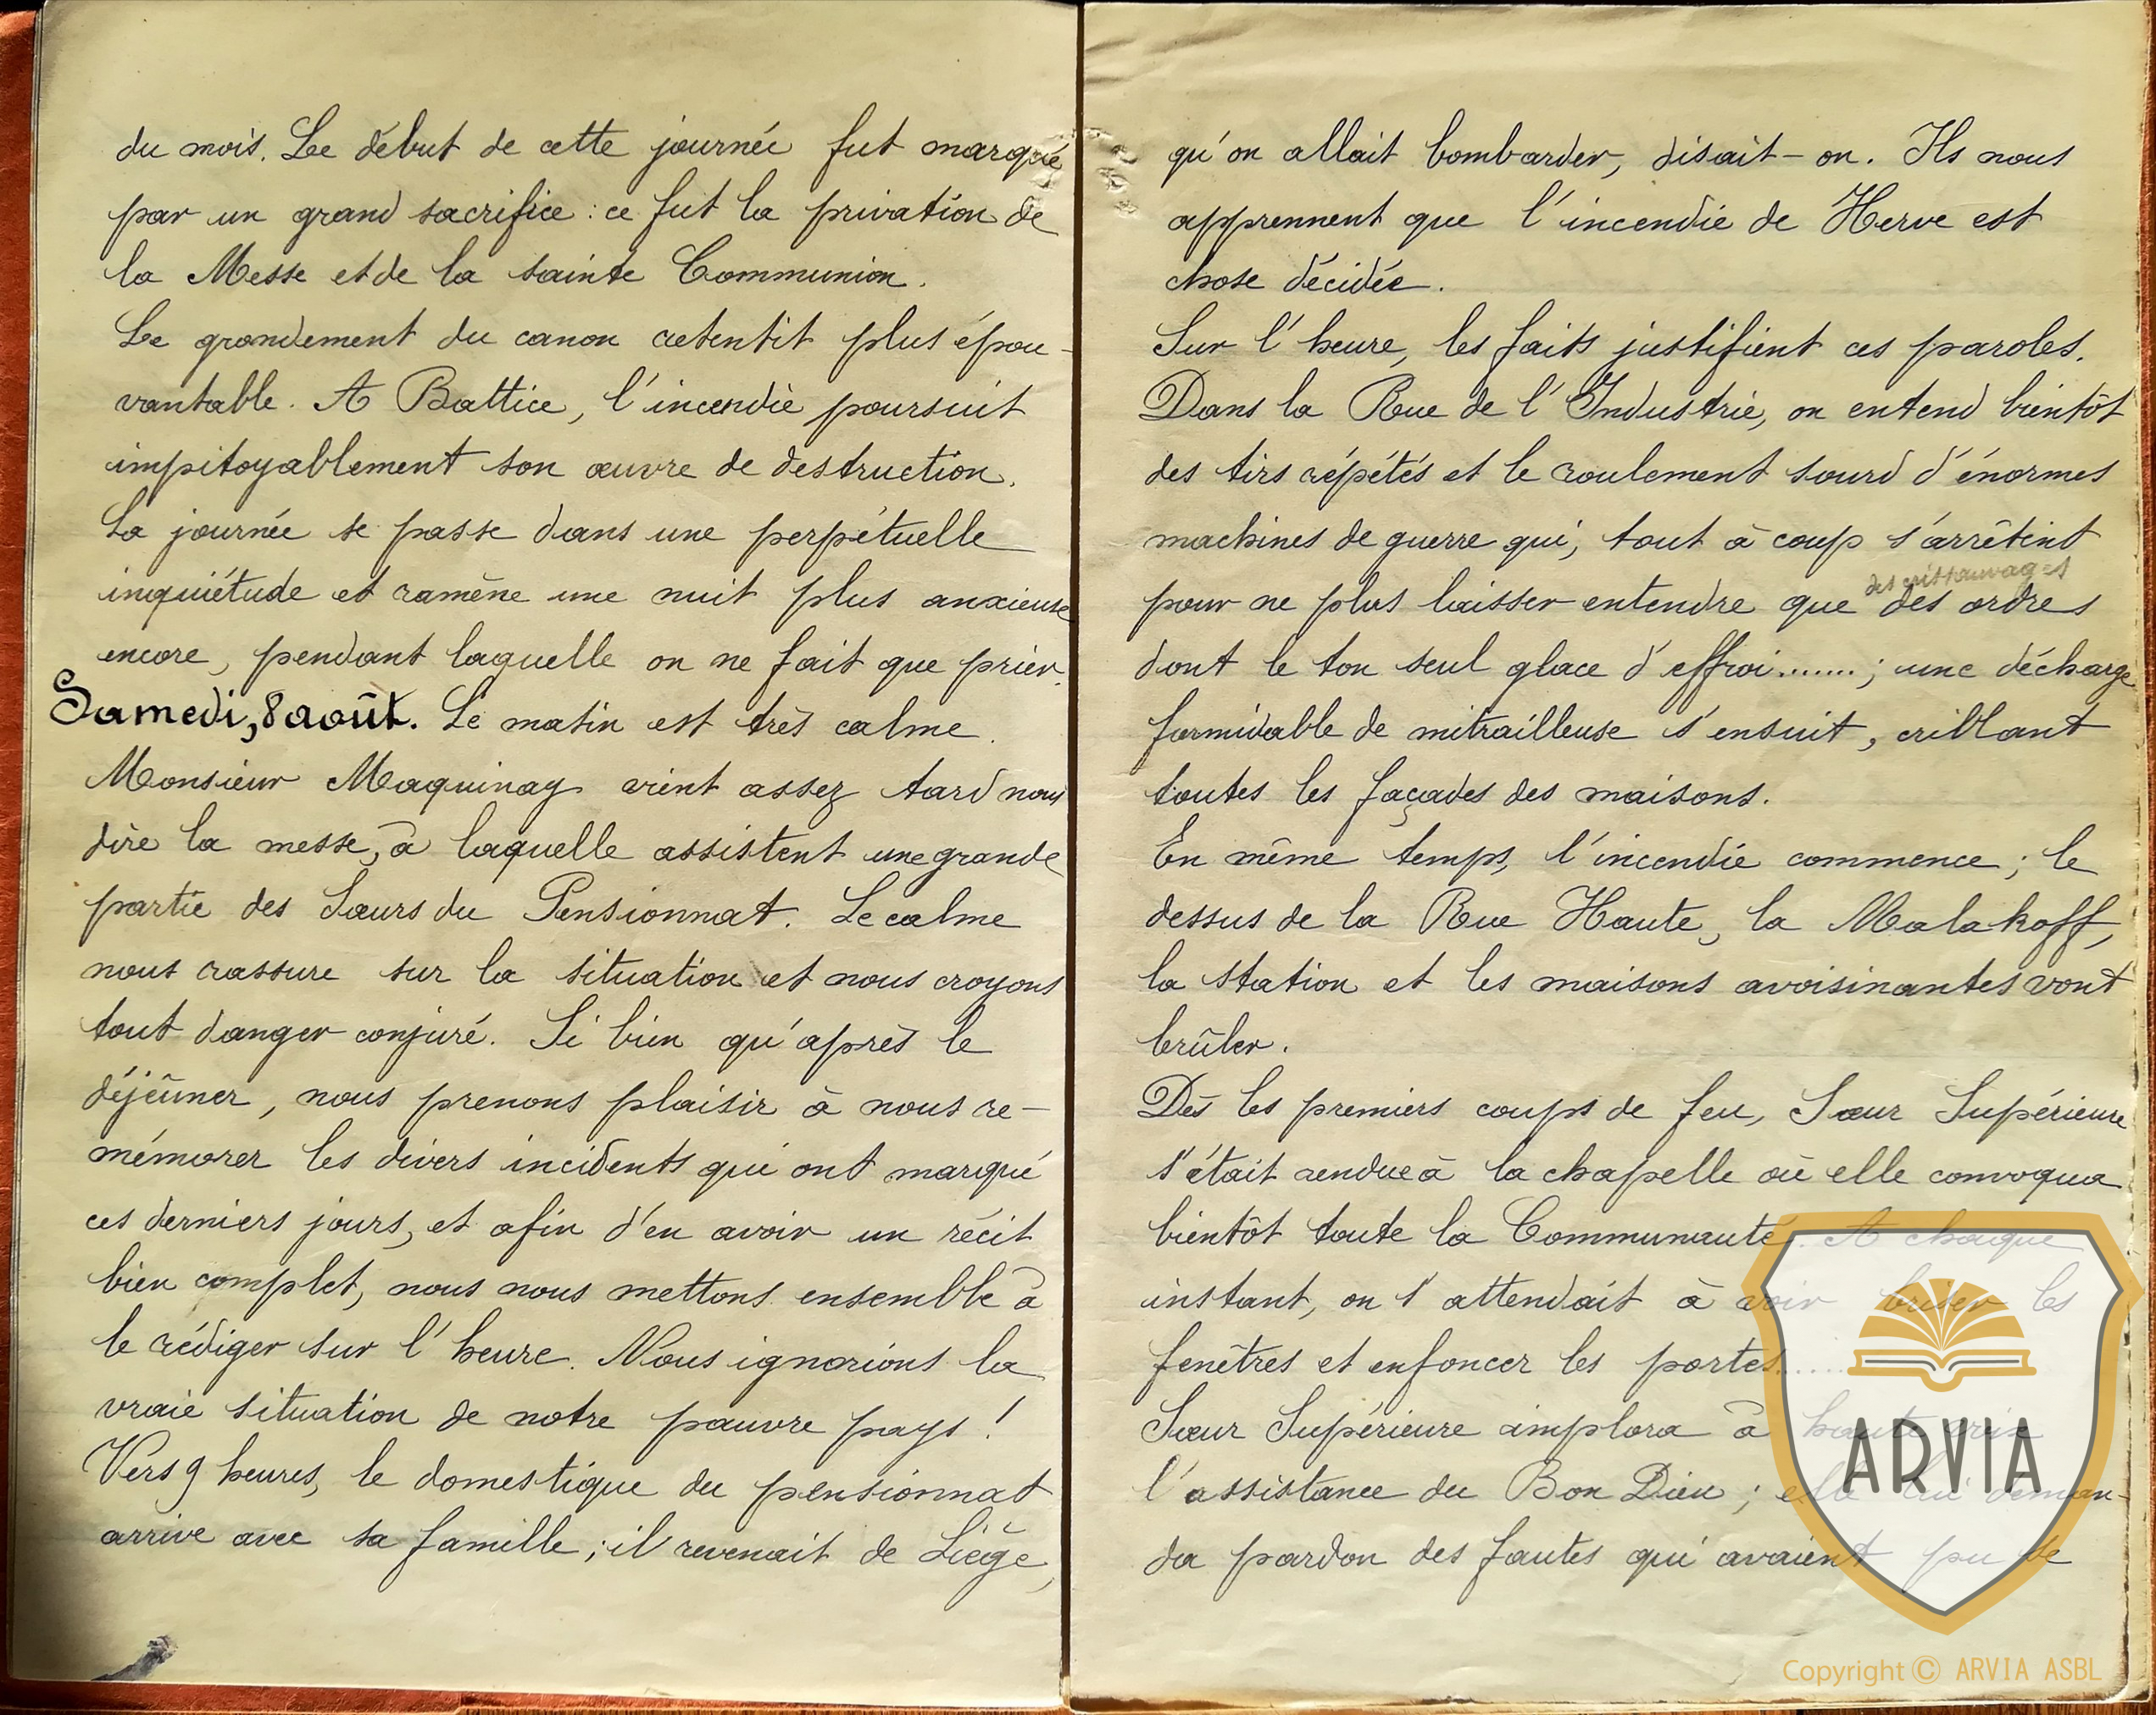 du mois. Le début de cette journée fut marquée
par un grand sacrifice : ce fut la privation de
la Messe et de la sainte Communion.
Le grondement du canon retentit plus épou-
vantable. A Battice, l'incendie poursuit
impitoyablement son œuvre de destruction.
La journée se passe dans une perpétuelle
inquiétude et ramène une nuit plus anxieuse
encore, pendant laquelle on ne fait que prier.
Samedi, 8 août. Le matin est très calme.
Monsieur Maquinay vient assez tard nous
dire la messe, à laquelle assistent une grande
partie des Sœurs du Pensionnat. Le calme
nous rassure sur la situation et nous croyons
tout danger conjuré. Si bien qu'après le
déjeûner, nous prenons plaisir à nous re-
mémorer les divers incidents qui ont marqué
ces derniers jours, et afin d'en avoir un récit
bien complet, nous nous mettons ensemble à
le rédiger sur l'heure. Nous ignorions la
vraie situation de notre pauvre pays !
Vers 9 heures, le domestique du pensionnat
arrive avec sa famille ; il revenait de Liège,
qu'on allait bombarder, disait-on. Ils nous
apprennent que l'incendie de Herve est
chose décidée.
Sur l'heure, les faits justifient ces paroles.
Dans la Rue de l'Industrie, on entend bientôt
des tirs répétés et le roulement sourd d'énormes
machines de guerre qui, tout à coup s'arrêtent
des cris sauvages
pour ne plus laisser entendre que des ordres
dont le ton seul glace d'effroi....... ; une décharge
formidable de mitrailleuse s'ensuit, criblant
toutes les façades des maisons.
En même temps, l'incendie commence ; le
dessus de la Rue Haute, la Malakoff,
la station et les maisons avoisinantes vont
brûler.
Dès les premiers coups de feu, Sœur Supérieure
s'était rendue à la chapelle où elle convoqua
bientôt toute la Communauté. A chaque
instant, on s'attendait à voir briser les
fenêtres et enfoncer les portes.....
Sœur Supérieure implora à haute voix
l'assistance du Bon Dieu ; elle lui deman-
da pardon des fautes qui avaient pu se
ARVIA
Copyright © ARVIA ASBL